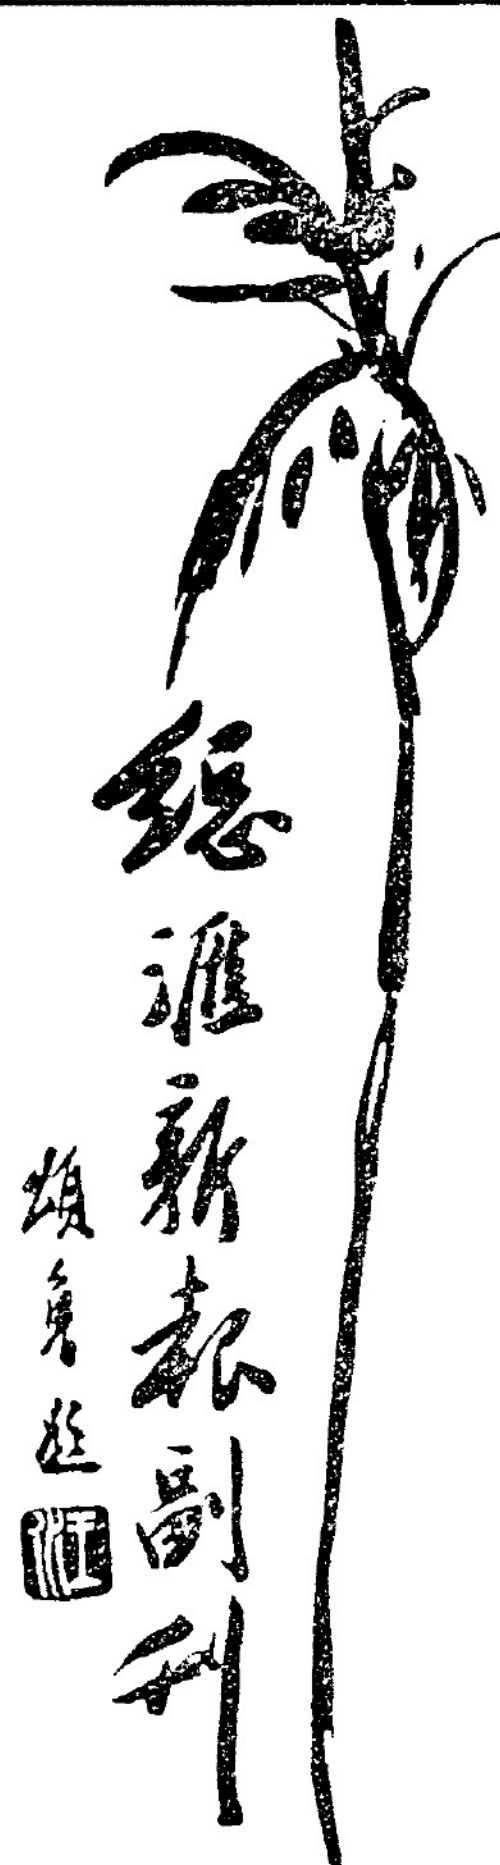 總滙新報副刊
頌魯題